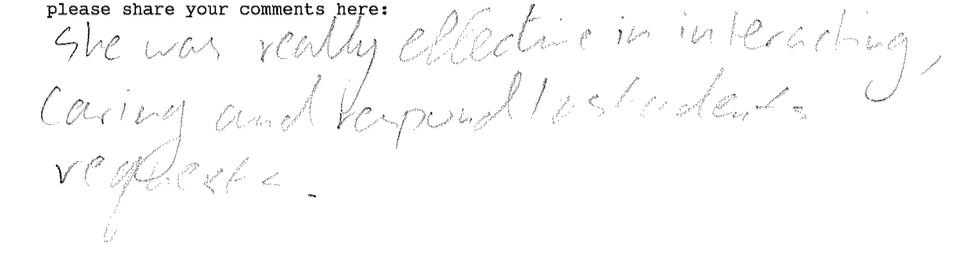 please share your comments here:
She was really effective in interacting,
Caring and respond to students
requests.